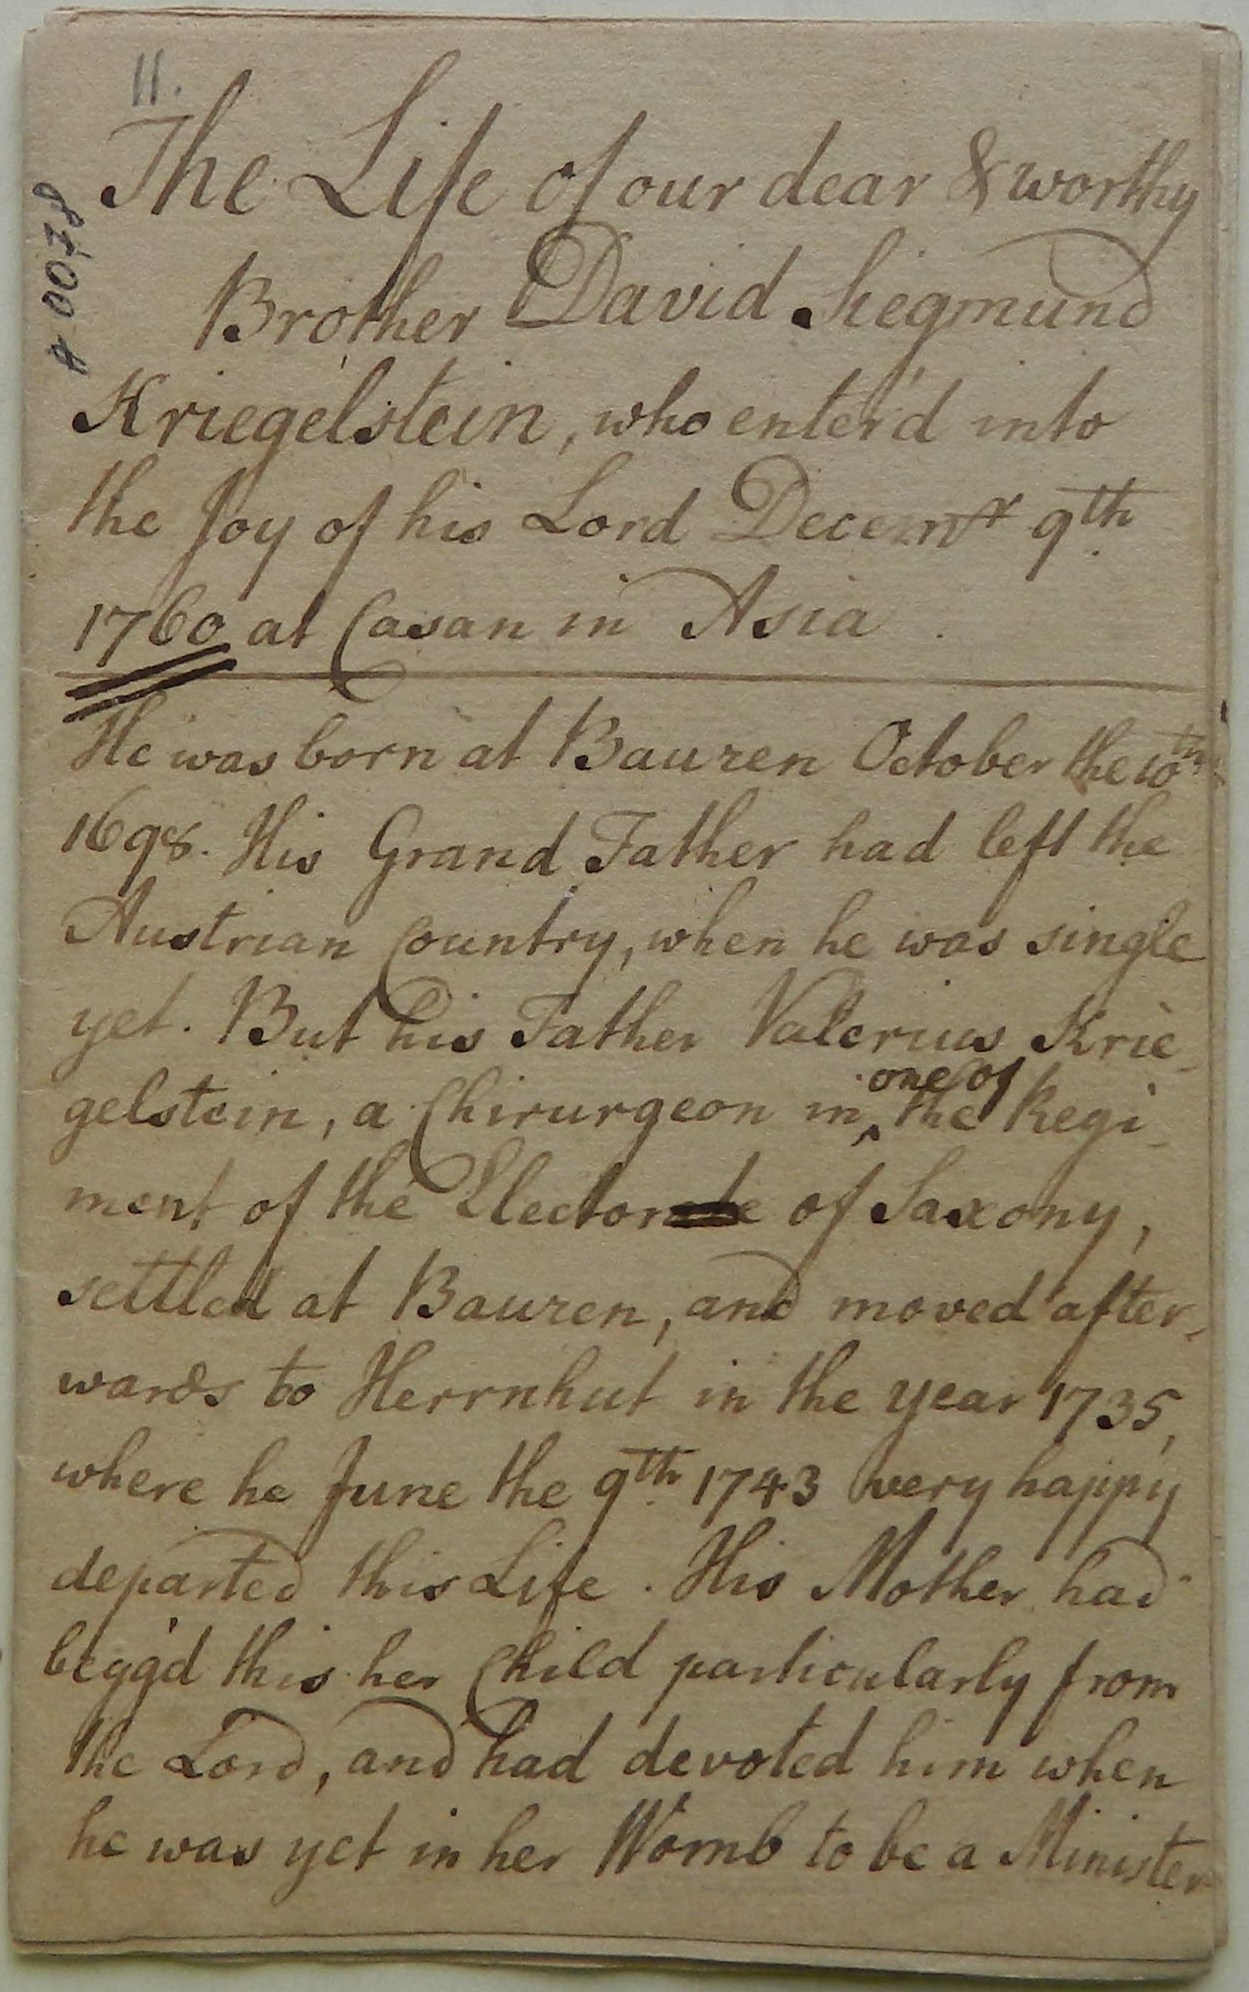 11.
A 0078
The Life of our dear & worthy
Brother David Siegmund
Kriegelstein, who enter'd into
the Joy of his Lord Decemr 9th.
1760 at Casan in Asia.
He was born at Bauzen October the 10th
1698. His Grand Father had left the
Austrian Country, when he was single
yet. But his Father Valerius Krie-
gelstein, a Chirurgeon in one of the Regi-
ment of the Elector of Saxony,
settled at Bauzen, and moved after-
wards to Herrnhut in the year 1735,
where he June the 9th. 1743 very happy
departed this Life. His Mother had
begg'd this her Child particularly from
the Lord, and had devoted him when
he was yet in her Womb to be a Minister